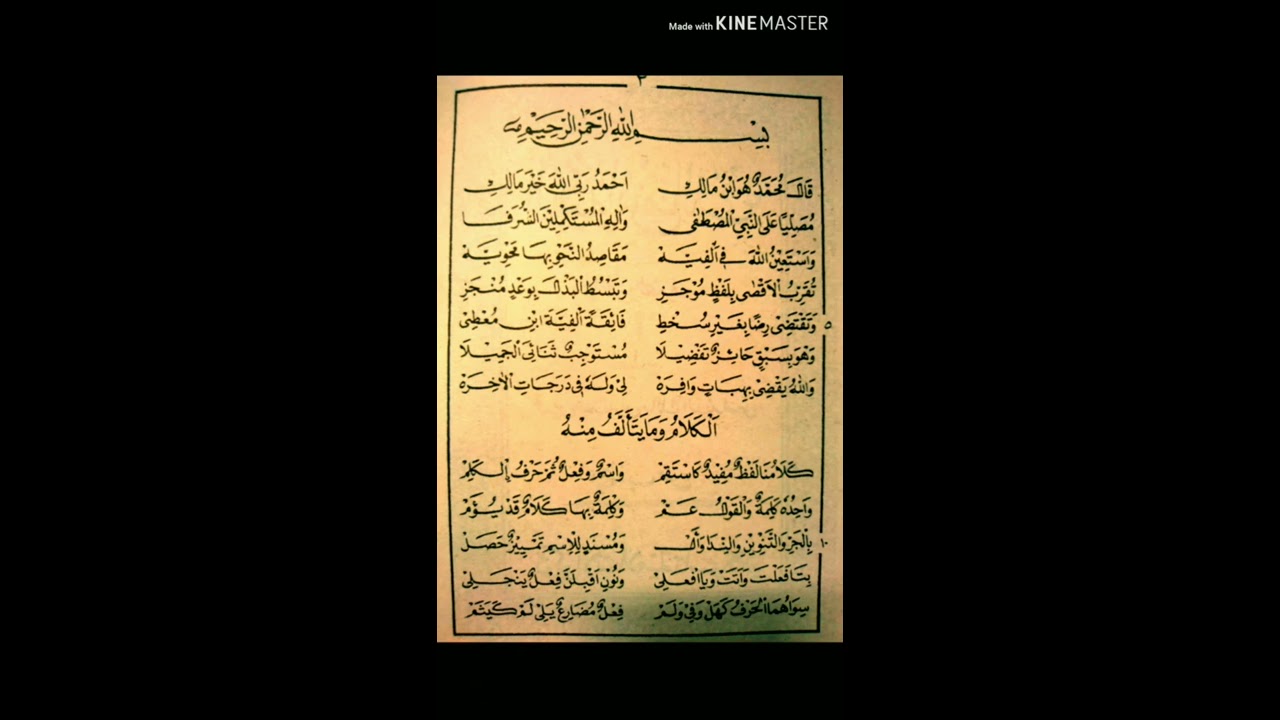 Made with KINEMASTER
٣
بِسْمِ اللهِ الرَّحْمٰنِ الرَّحِيْمِ
قَالَ مُحَمَّدٌ هُوَ ابْنُ مَالِكِ اَحْمَدُ رَبِّي اللهَ خَيْرَ مَالِكِ
مُصَلِّيًا عَلَى النَّبِيِّ الْمُصْطَفٰى وَاٰلِهِ الْمُسْتَكْمِلِيْنَ الشُّرَفَا
وَاَسْتَعِيْنُ اللهَ فِى اَلْفِيَّهْ مَقَاصِدُ النَّحْوِ بِهَا مَحْوِيَّهْ
تُقَرِّبُ الْاَقْصٰى بِلَفْظٍ مُوْجَزِ وَتَبْسُطُ الْبَذْلَ بِوَعْدٍ مُنْجَزِ
وَتَقْتَضِى رِضًا بِغَيْرِ سُخْطِ فَائِقَةً اَلْفِيَّةَ ابْنِ مُعْطِى ٥
وَهْوَ بِسَبْقٍ حَائِزٌ تَفْضِيْلَا مُسْتَوْجِبٌ ثَنَائِىَ الْجَمِيْلَا
وَاللهُ يَقْضِى بِهِبَاتٍ وَافِرَهْ لِىْ وَلَهُ فِى دَرَجَاتِ الْاٰخِرَهْ
اَلْكَلَامُ وَمَا يَتَأَلَّفُ مِنْهُ
كَلَامُنَا لَفْظٌ مُفِيْدٌ كَاسْتَقِمْ وَاسْمٌ وَفِعْلٌ ثُمَّ حَرْفٌ اِلْكَلِمْ
وَاحِدُهُ كَلِمَةٌ وَالْقَوْلُ عَمْ وَكِلْمَةٌ بِهَا كَلَامٌ قَدْ يُؤَمْ
بِالْجَرِّ وَالتَّنْوِيْنِ وَالنِّدَا وَأَلْ وَمُسْنَدٍ لِلْاِسْمِ تَمْيِيْزٌ حَصَلْ ١٠
بِتَا فَعَلْتَ وَاَتَتْ وَيَا افْعَلِىْ وَنُوْنِ اَقْبِلَنَّ فِعْلٌ يَنْجَلِىْ
سِوَاهُمَا الْحَرْفُ كَهَلْ وَفِىْ وَلَمْ فِعْلٌ مُضَارِعٌ يَلِىْ لَمْ كَيَشَمْ